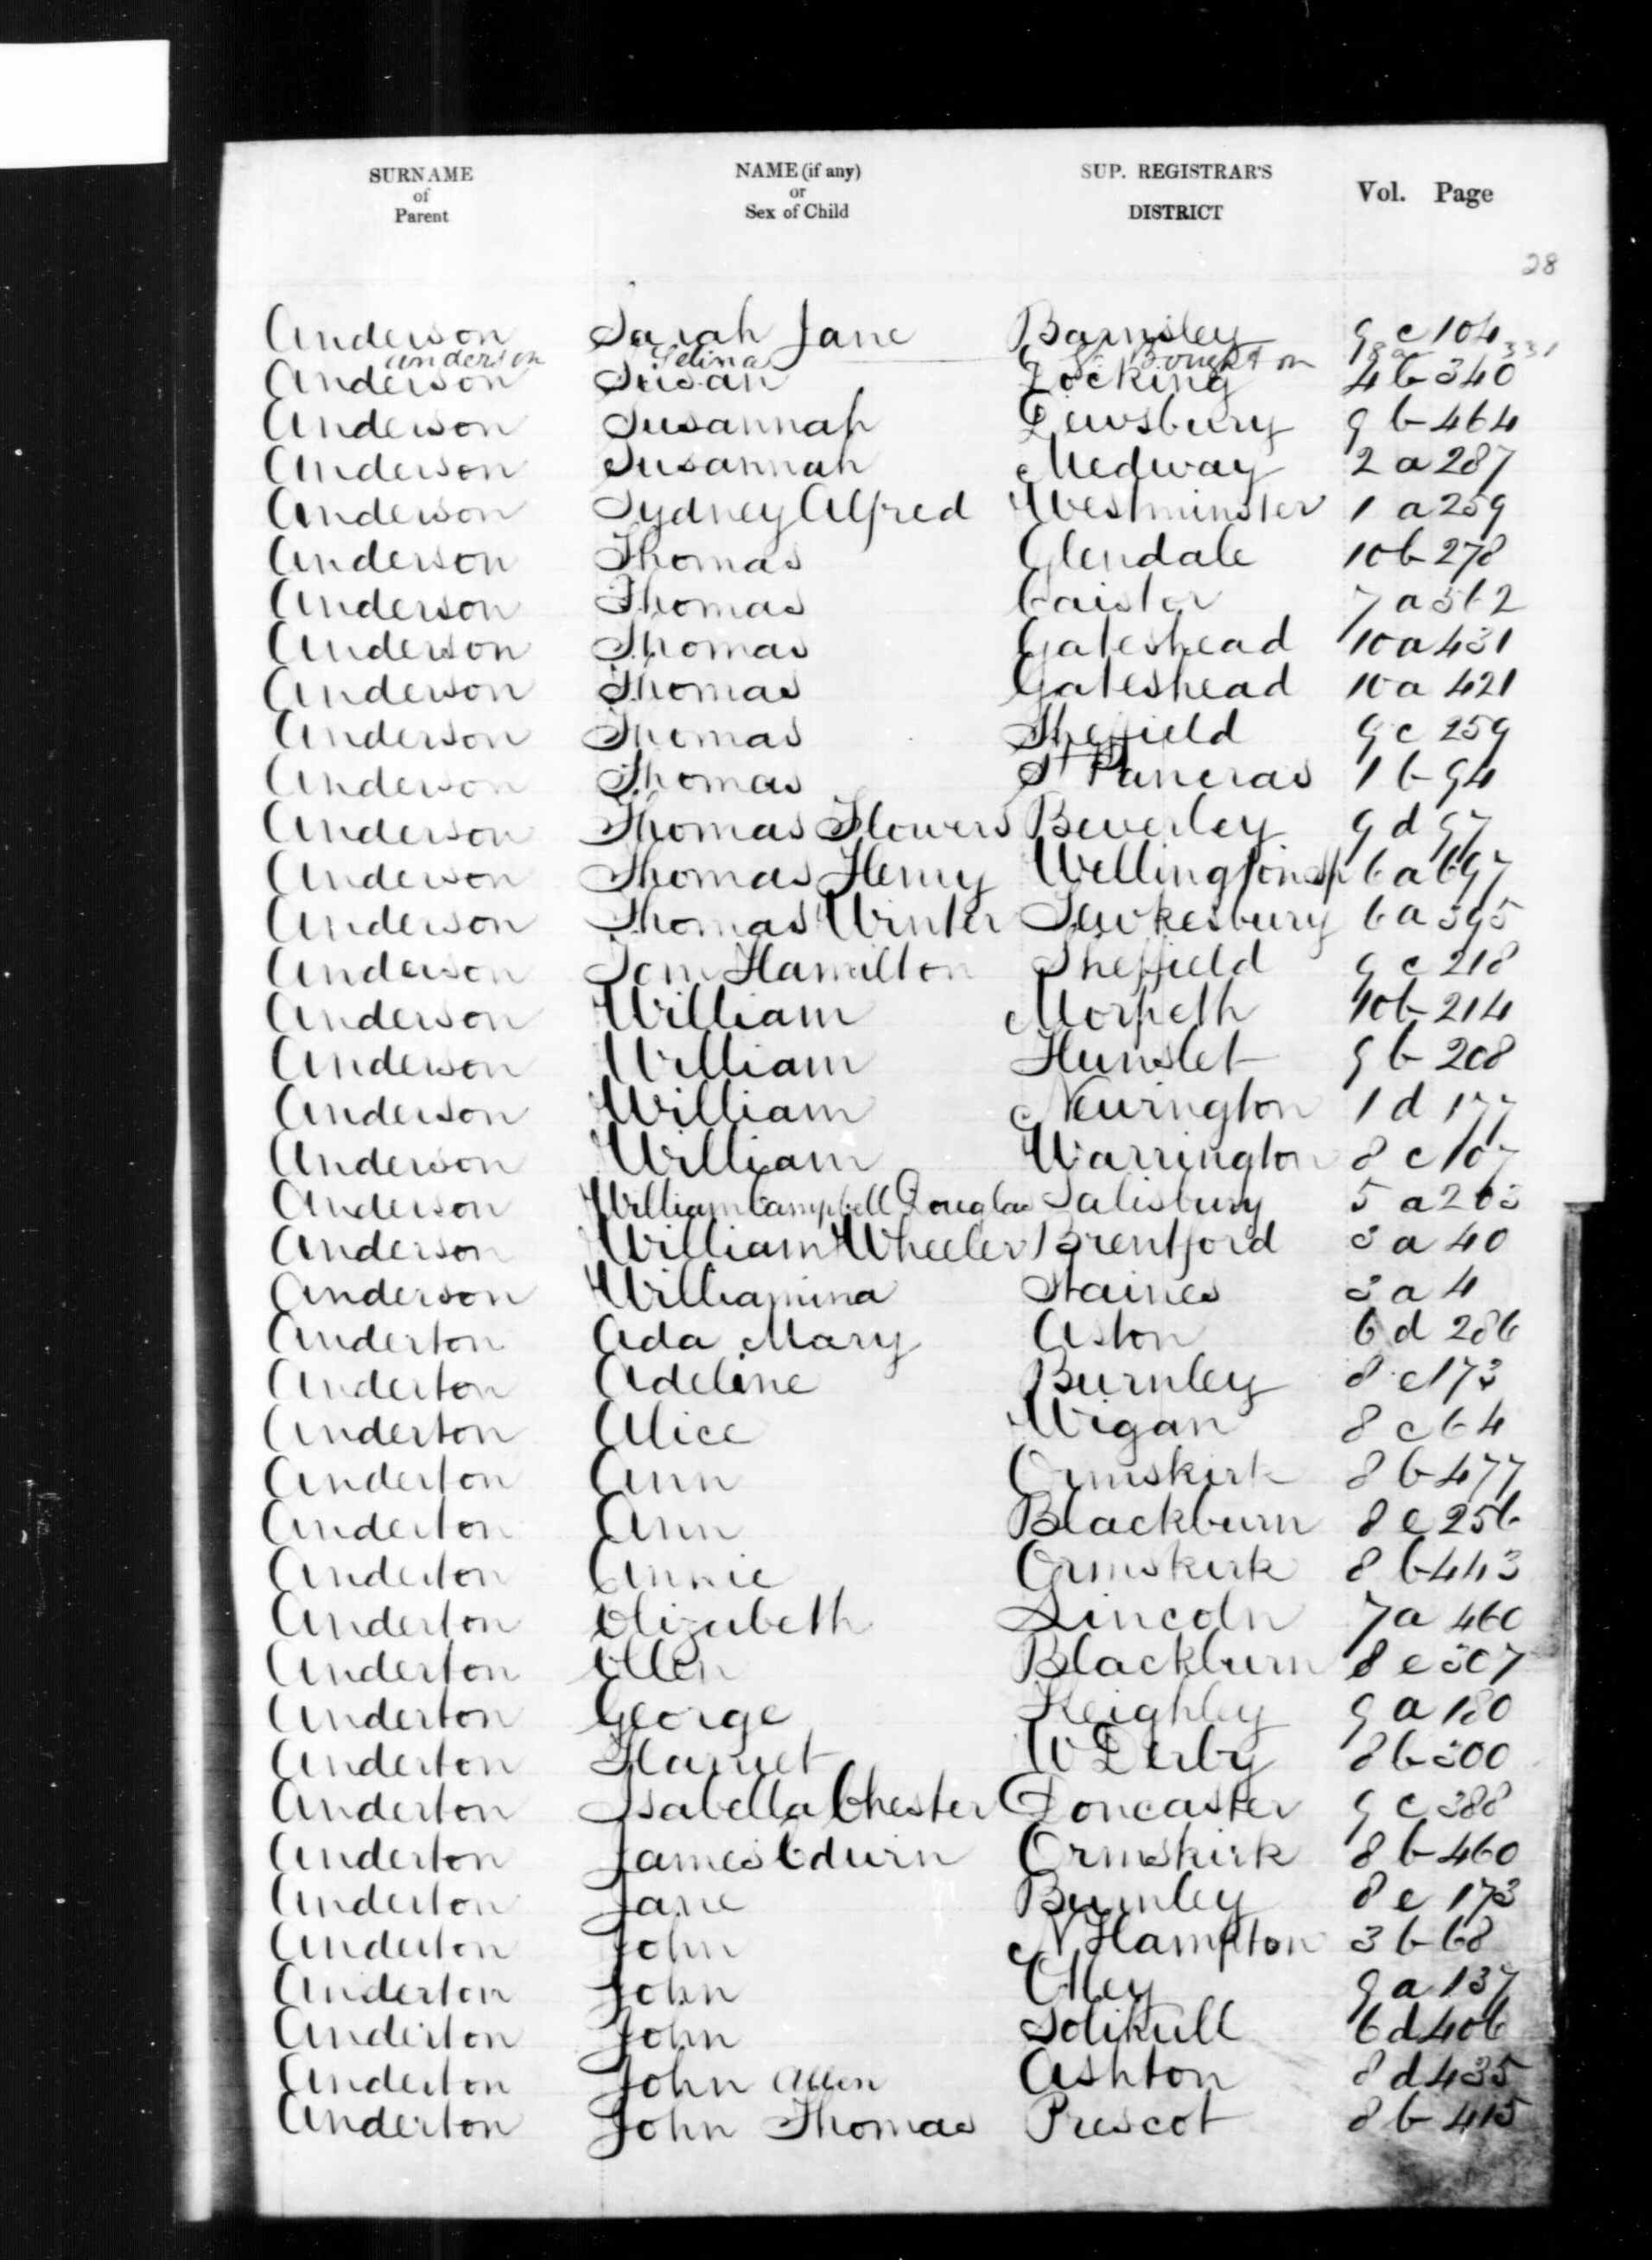 SURNAME of Parent NAME (if any) or Sex of Child SUP. REGISTRAR'S DISTRICT Vol. Page
28
Anderson Sarah Jane Barnsley 9 c 104
Anderson Selina Boughton 331
Anderson Susan Docking 4 b 340
Anderson Susannah Dewsbury 9 b 464
Anderson Susannah Medway 2 a 287
Anderson Sydney Alfred Westminster 1 a 259
Anderson Thomas Glendale 10 b 278
Anderson Thomas Caistor 7 a 562
Anderson Thomas Gateshead 10 a 431
Anderson Thomas Gateshead 10 a 421
Anderson Thomas Sheffield 9 c 259
Anderson Thomas St Pancras 1 b 94
Anderson Thomas Flowers Beverley 9 d 97
Anderson Thomas Henry Wellington Sp 6 a 697
Anderson Thomas Winter Tewkesbury 6 a 395
Anderson Tom Hamilton Sheffield 9 c 218
Anderson William Morpeth 10 b 214
Anderson William Hunslet 9 b 208
Anderson William Newington 1 d 177
Anderson William Warrington 8 c 107
Anderson William Campbell Douglas Salisbury 5 a 203
Anderson William Wheeler Brentford 3 a 40
Anderson Williamina Staines 3 a 4
Anderton Ada Mary Aston 6 d 286
Anderton Adeline Burnley 8 e 173
Anderton Alice Wigan 8 c 64
Anderton Ann Ormskirk 8 b 477
Anderton Ann Blackburn 8 e 256
Anderton Annie Ormskirk 8 b 443
Anderton Elizabeth Lincoln 7 a 460
Anderton Ellen Blackburn 8 e 307
Anderton George Keighley 9 a 180
Anderton Harriet W Derby 8 b 300
Anderton Isabella Chester Doncaster 9 c 388
Anderton James Edwin Ormskirk 8 b 460
Anderton Jane Burnley 8 e 173
Anderton John N Hampton 3 b 68
Anderton John Otley 9 a 137
Anderton John Solihull 6 d 406
Anderton John Allen Ashton 8 d 435
Anderton John Thomas Prescot 8 b 415